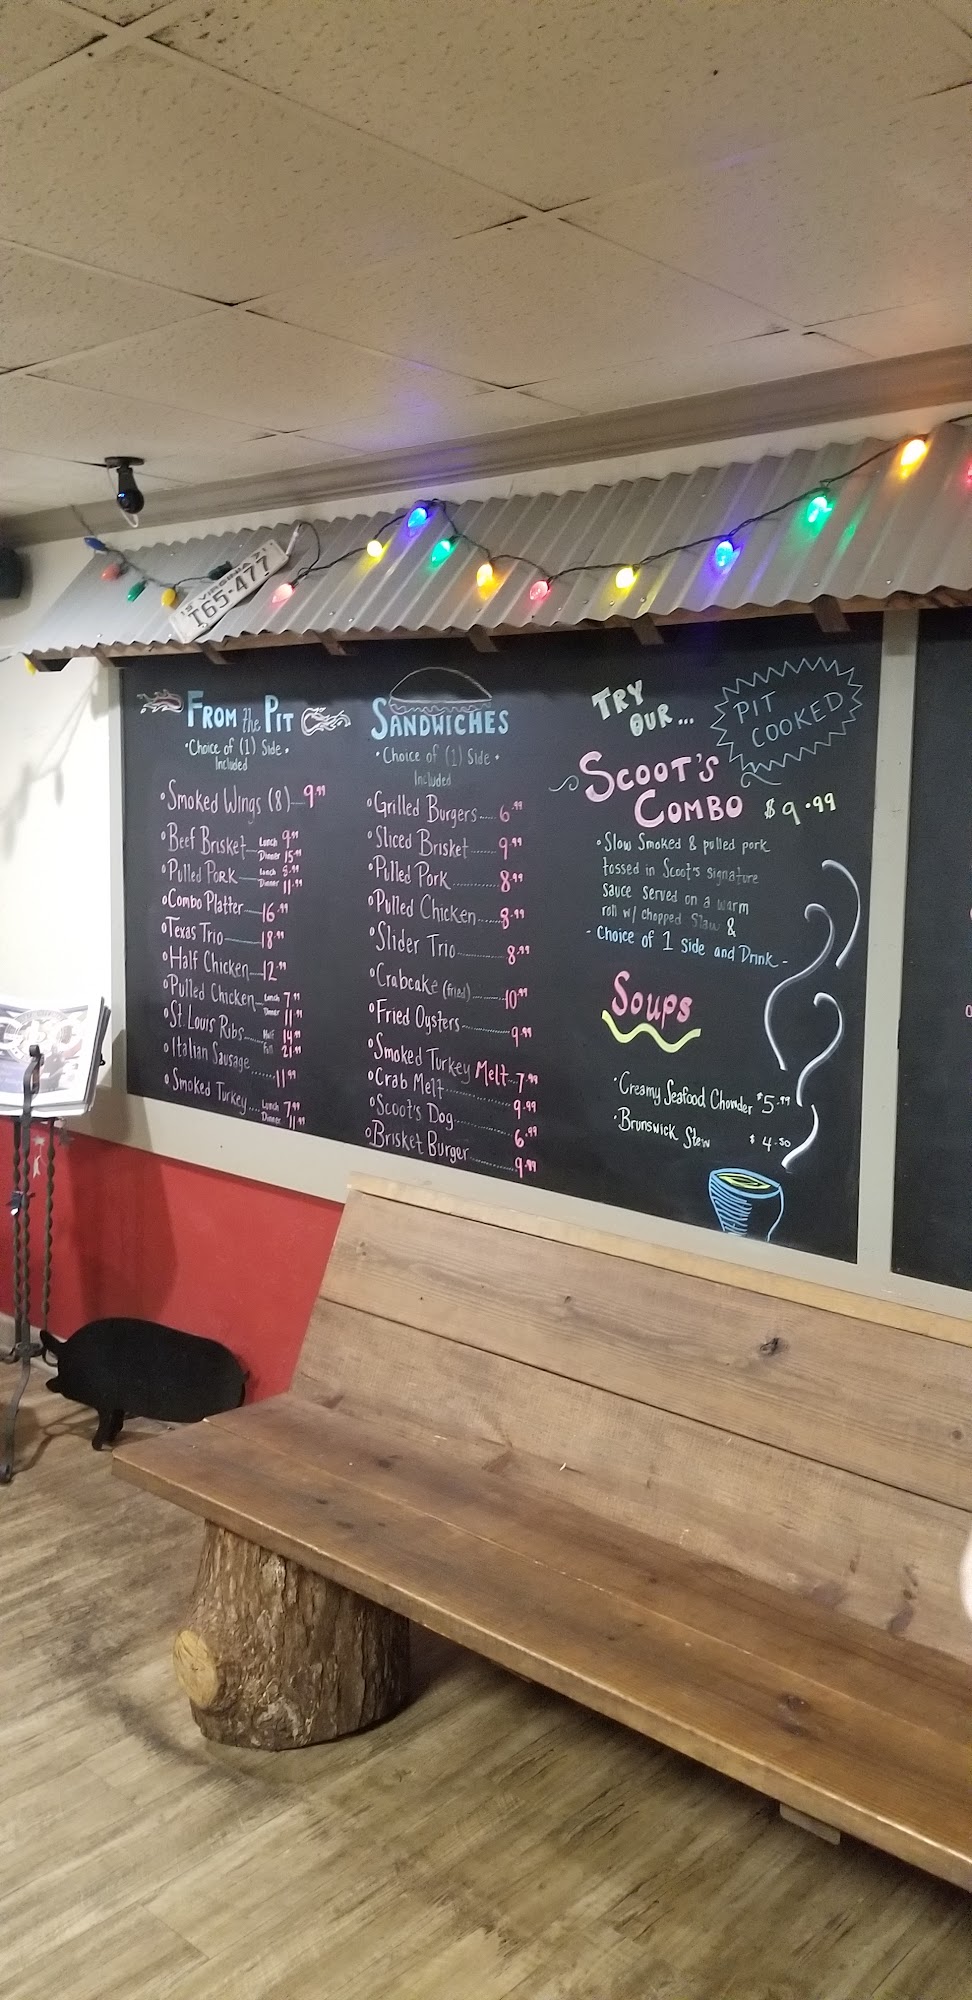 VIRGINIA
I65-477
FROM the PIT
• Choice of (1) Side •
Included
Smoked Wings (8) 9.99
Beef Brisket Lunch 9.99
Dinner 15.99
Pulled Pork Lunch 8.99
Dinner 11.99
Combo Platter 16.99
Texas Trio 18.99
Half Chicken 12.99
Pulled Chicken Lunch 7.99
Dinner 11.99
St. Louis Ribs Half 14.99
Full 21.99
Italian Sausage 11.99
Smoked Turkey Lunch 7.99
Dinner 11.99
SANDWICHES
• Choice of (1) Side •
Included
Grilled Burgers 6.99
Sliced Brisket 9.99
Pulled Pork 8.99
Pulled Chicken 8.99
Slider Trio 8.99
Crabcake (fried) 10.99
Fried Oysters 9.99
Smoked Turkey Melt 7.99
Crab Melt 9.99
Scoot's Dog 6.99
Brisket Burger 9.99
TRY
OUR...
PIT
COOKED
SCOOT'S
COMBO $9.99
• Slow Smoked & pulled pork
tossed in Scoot's signature
sauce served on a warm
roll w/ chopped Slaw &
- Choice of 1 Side and Drink -
Soups
• Creamy Seafood Chowder $5.99
• Brunswick Stew $4.50